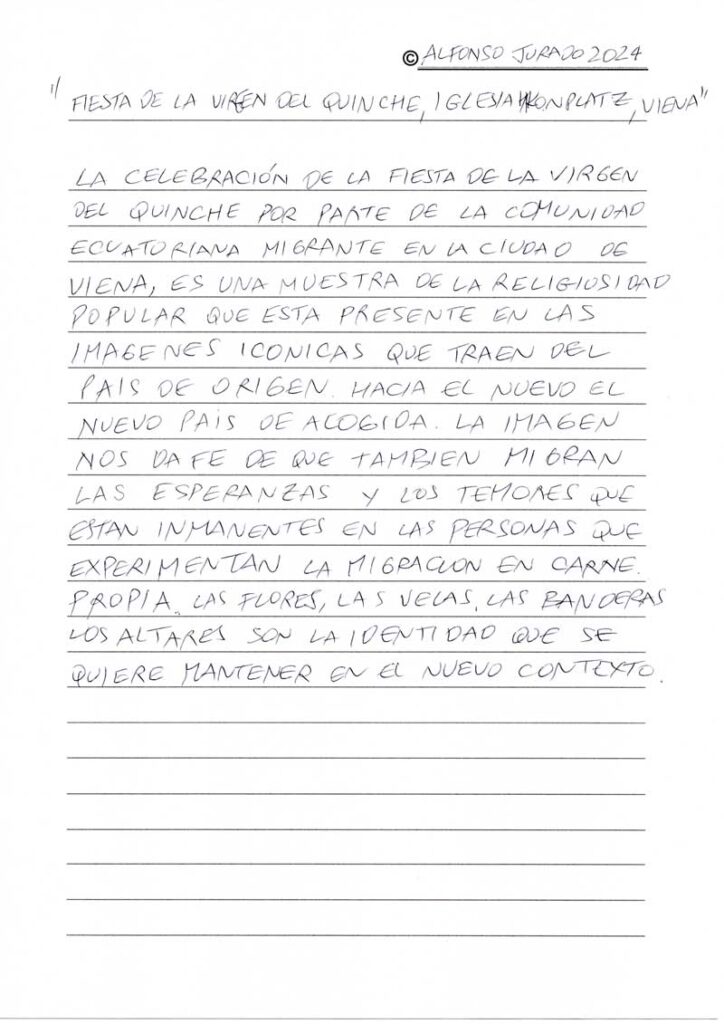 © ALFONSO JURADO 2024
"FIESTA DE LA VIRGEN DEL QUINCHE, IGLESIA KONPLATZ, VIENA"
LA CELEBRACIÓN DE LA FIESTA DE LA VIRGEN
DEL QUINCHE POR PARTE DE LA COMUNIDAD
ECUATORIANA MIGRANTE EN LA CIUDAD DE
VIENA, ES UNA MUESTRA DE LA RELIGIOSIDAD
POPULAR QUE ESTA PRESENTE EN LAS
IMAGENES ICONICAS QUE TRAEN DEL
PAIS DE ORIGEN. HACIA EL NUEVO EL
NUEVO PAIS DE ACOGIDA. LA IMAGEN
NOS DA FE DE QUE TAMBIEN MIGRAN
LAS ESPERANZAS Y LOS TEMORES QUE
ESTAN INMANENTES EN LAS PERSONAS QUE
EXPERIMENTAN LA MIGRACION EN CARNE.
PROPIA. LAS FLORES, LAS VELAS, LAS BANDERAS
LOS ALTARES SON LA IDENTIDAD QUE SE
QUIERE MANTENER EN EL NUEVO CONTEXTO.